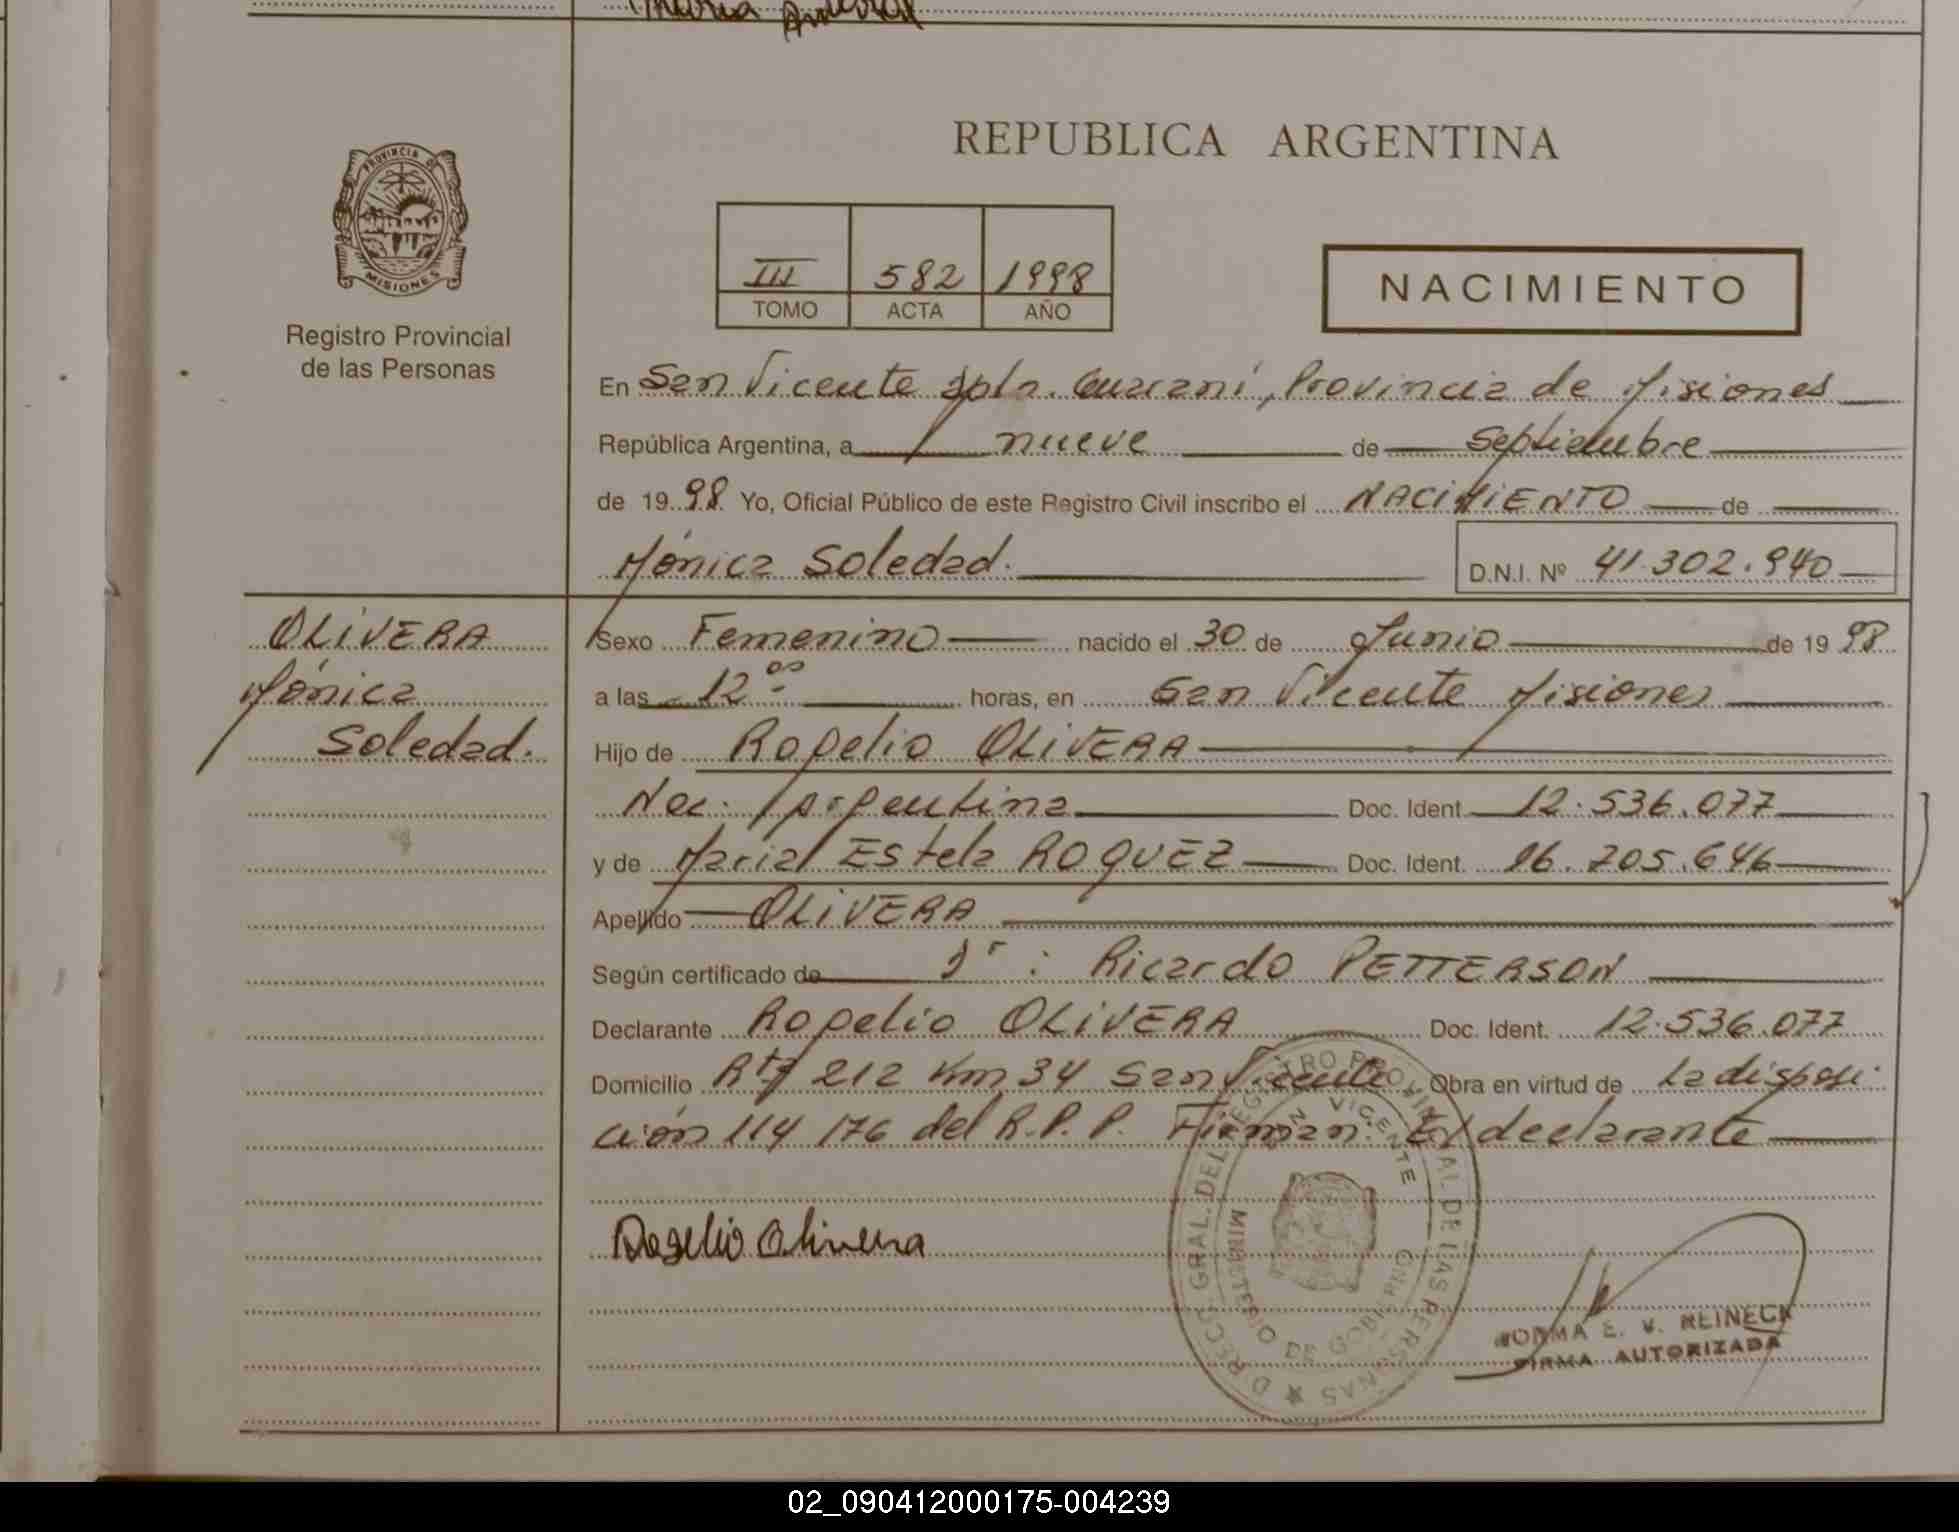 María
REPUBLICA ARGENTINA
PROVINCIA DE
MISIONES
Registro Provincial
de las Personas
III 582 1998
TOMO ACTA AÑO
NACIMIENTO
En San Vicente Dpto. Guaraní, Provincia de Misiones
República Argentina, a nueve de Septiembre
de 19 98 Yo, Oficial Público de este Registro Civil inscribo el NACIMIENTO de
Mónica Soledad.
D.N.I. Nº 41.302.940
OLIVERA
Mónica
Soledad.
Sexo Femenino nacido el 30 de Junio de 19 98
a las 12 00 horas, en San Vicente Misiones
Hijo de Rogelio OLIVERA
Nac. Argentina Doc. Ident. 12.536.077
y de María Estela ROQUEZ Doc. Ident. 16.705.646
Apellido OLIVERA
Según certificado de Dr: Ricardo PETTERSON
Declarante Rogelio OLIVERA Doc. Ident. 12.536.077
Domicilio Rta 212 Km 34 San Vicente Obra en virtud de La disposi-
ción 114/76 del R.P.P. Firman: El declarante
Rogelio Olivera
DIRECC. GRAL. DEL REGISTRO PROVINCIAL DE LAS PERSONAS
SAN VICENTE
MINISTERIO DE GOBIERNO
NORMA E. V. REINECK
FIRMA AUTORIZADA
02_090412000175-004239